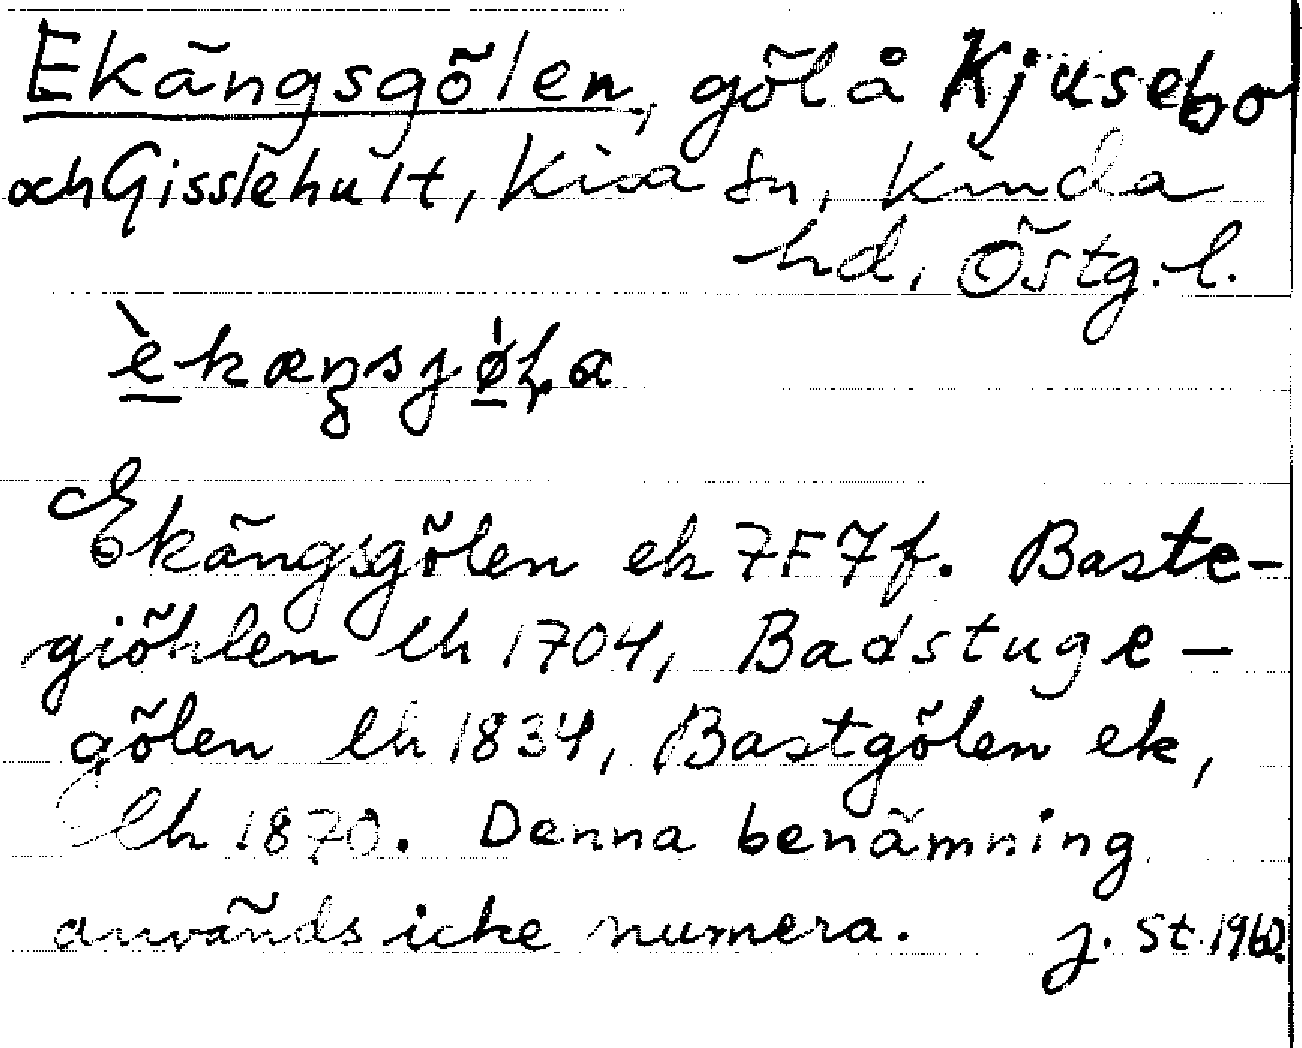 Ekängsgölen, göl å Kjusebo
och Gisslehult, Kisa sn, Kinda
hd, Östg.l.
èkæŋsjø̀ḷa
Ekängsgölen ek 7F7f. Baste-
giöhlen lh 1704, Badstuge-
gölen lh 1834, Bastgölen ek,
lh 1870. Denna benämning
används icke numera. J. St. 1960.